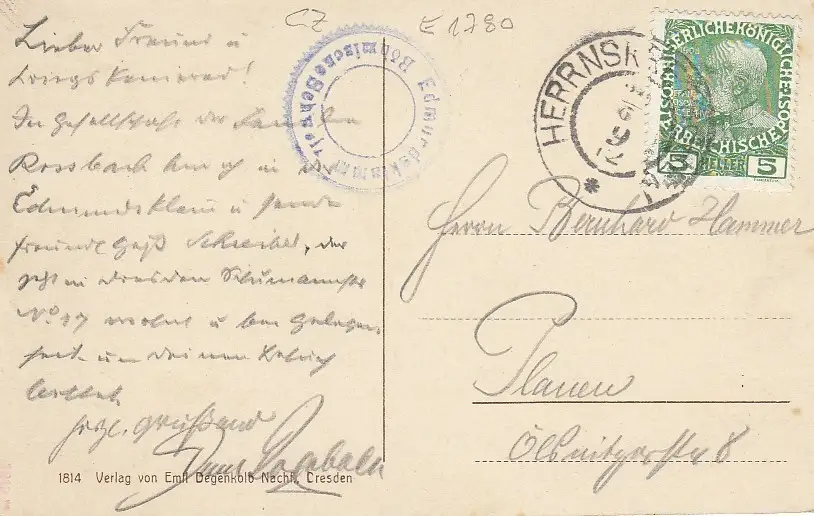 CZ
E 1780
Lieber Freund u
Kriegskamerad!
In Gesellschaft der Familie
Rossbach bin ich in der
Edmundsklam u sende
freundl Gruß Schreiber, der
jetzt in Dresden Schumannstr
No 17 wohnt u bei Gelegen
heit um deinen Besuch
bittet
herzl. grüßend
Edmundsklamm
Böhmische Schweiz
HERRNSK
KAISERLICHE KÖNIGLICHE ÖSTERREICHISCHE POST
5 HELLER 5
Herrn Bernhard Hammer
Plauen
Ölsnitzerstr 8
1814 Verlag von Emil Degenkolb Nachf., Dresden